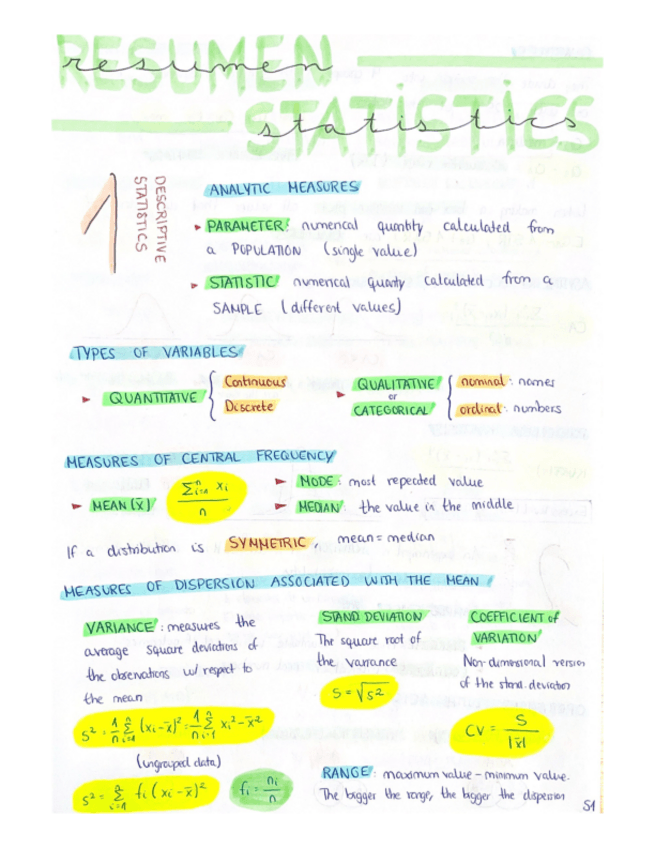 RESUMEN
resumen
STATISTICS
statistics
1
DESCRIPTIVE
STATISTICS
ANALYTIC MEASURES
▸ PARAMETER: numerical quantity calculated from
a POPULATION (single value)
▸ STATISTIC numerical quantity calculated from a
SAMPLE (different values)
TYPES OF VARIABLES
▸ QUANTITATIVE { Continuous
Discrete
▸ QUALITATIVE or CATEGORICAL { nominal: names
ordinal: numbers
MEASURES OF CENTRAL FREQUENCY
▸ MEAN (x̄) Σⁿᵢ₌₁ xᵢ / n
▸ MODE: most repeated value
▸ MEDIAN: the value in the middle
If a distribution is SYMMETRIC, mean = median
MEASURES OF DISPERSION ASSOCIATED WITH THE MEAN
VARIANCE: measures the
average square deviations of
the observations w/ respect to
the mean
S² = 1/n Σⁿᵢ₌₁ (xᵢ - x̄)² = 1/n Σⁿᵢ₌₁ xᵢ² - x̄²
(ungrouped data)
S² = Σⁿᵢ₌₁ fᵢ (xᵢ - x̄)²
fᵢ = nᵢ / n
STAND DEVIATION
The square root of
the variance
S = √S²
COEFFICIENT of
VARIATION
Non-dimensional version
of the stand. deviation
CV = S / |x̄|
RANGE: maximum value - minimum value.
The bigger the range, the bigger the dispersion
S1